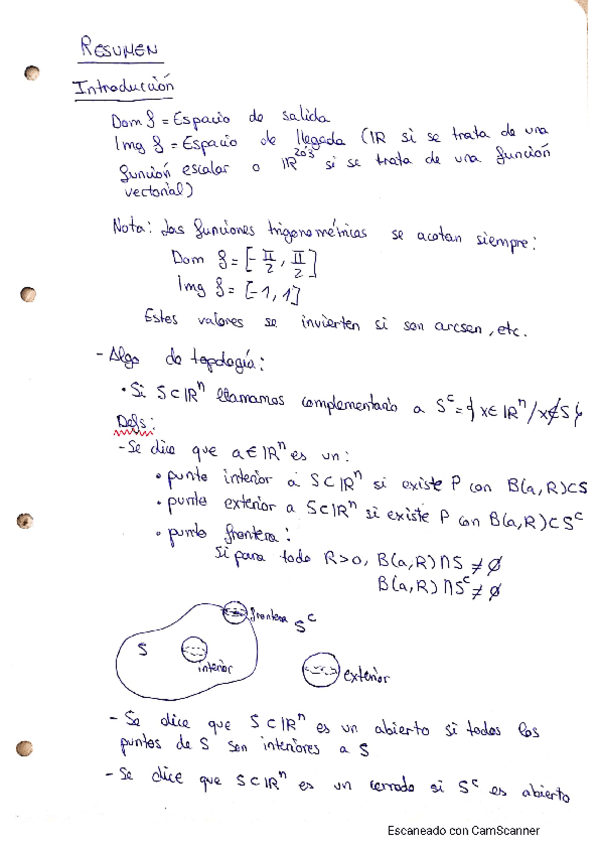 RESUMEN
Introducción
Dom f = Espacio de salida
Img f = Espacio de llegada (IR si se trata de una
función escalar o IR^2ó3 si se trata de una función
vectorial)
Nota: Las funciones trigonométricas se acotan siempre:
Dom f = [-π/2, π/2]
Img f = [-1, 1]
Estes valores se invierten si son arcsen, etc.
- Algo de topología:
• Si S⊂IRⁿ llamamos complementario a Sᶜ = {x∈IRⁿ/x∉S}
Defs:
- Se dice que a∈IRⁿ es un:
• punto interior a S⊂IRⁿ si existe P con B(a,R)⊂S
• punto exterior a S⊂IRⁿ si existe P con B(a,R)⊂Sᶜ
• punto frontera:
Si para todo R>0, B(a,R)∩S ≠ ∅
B(a,R)∩Sᶜ ≠ ∅
frontera Sᶜ
S
interior
exterior
- Se dice que S⊂IRⁿ es un abierto si todos los
puntos de S son interiores a S
- Se dice que S⊂IRⁿ es un cerrado si Sᶜ es abierto
Escaneado con CamScanner